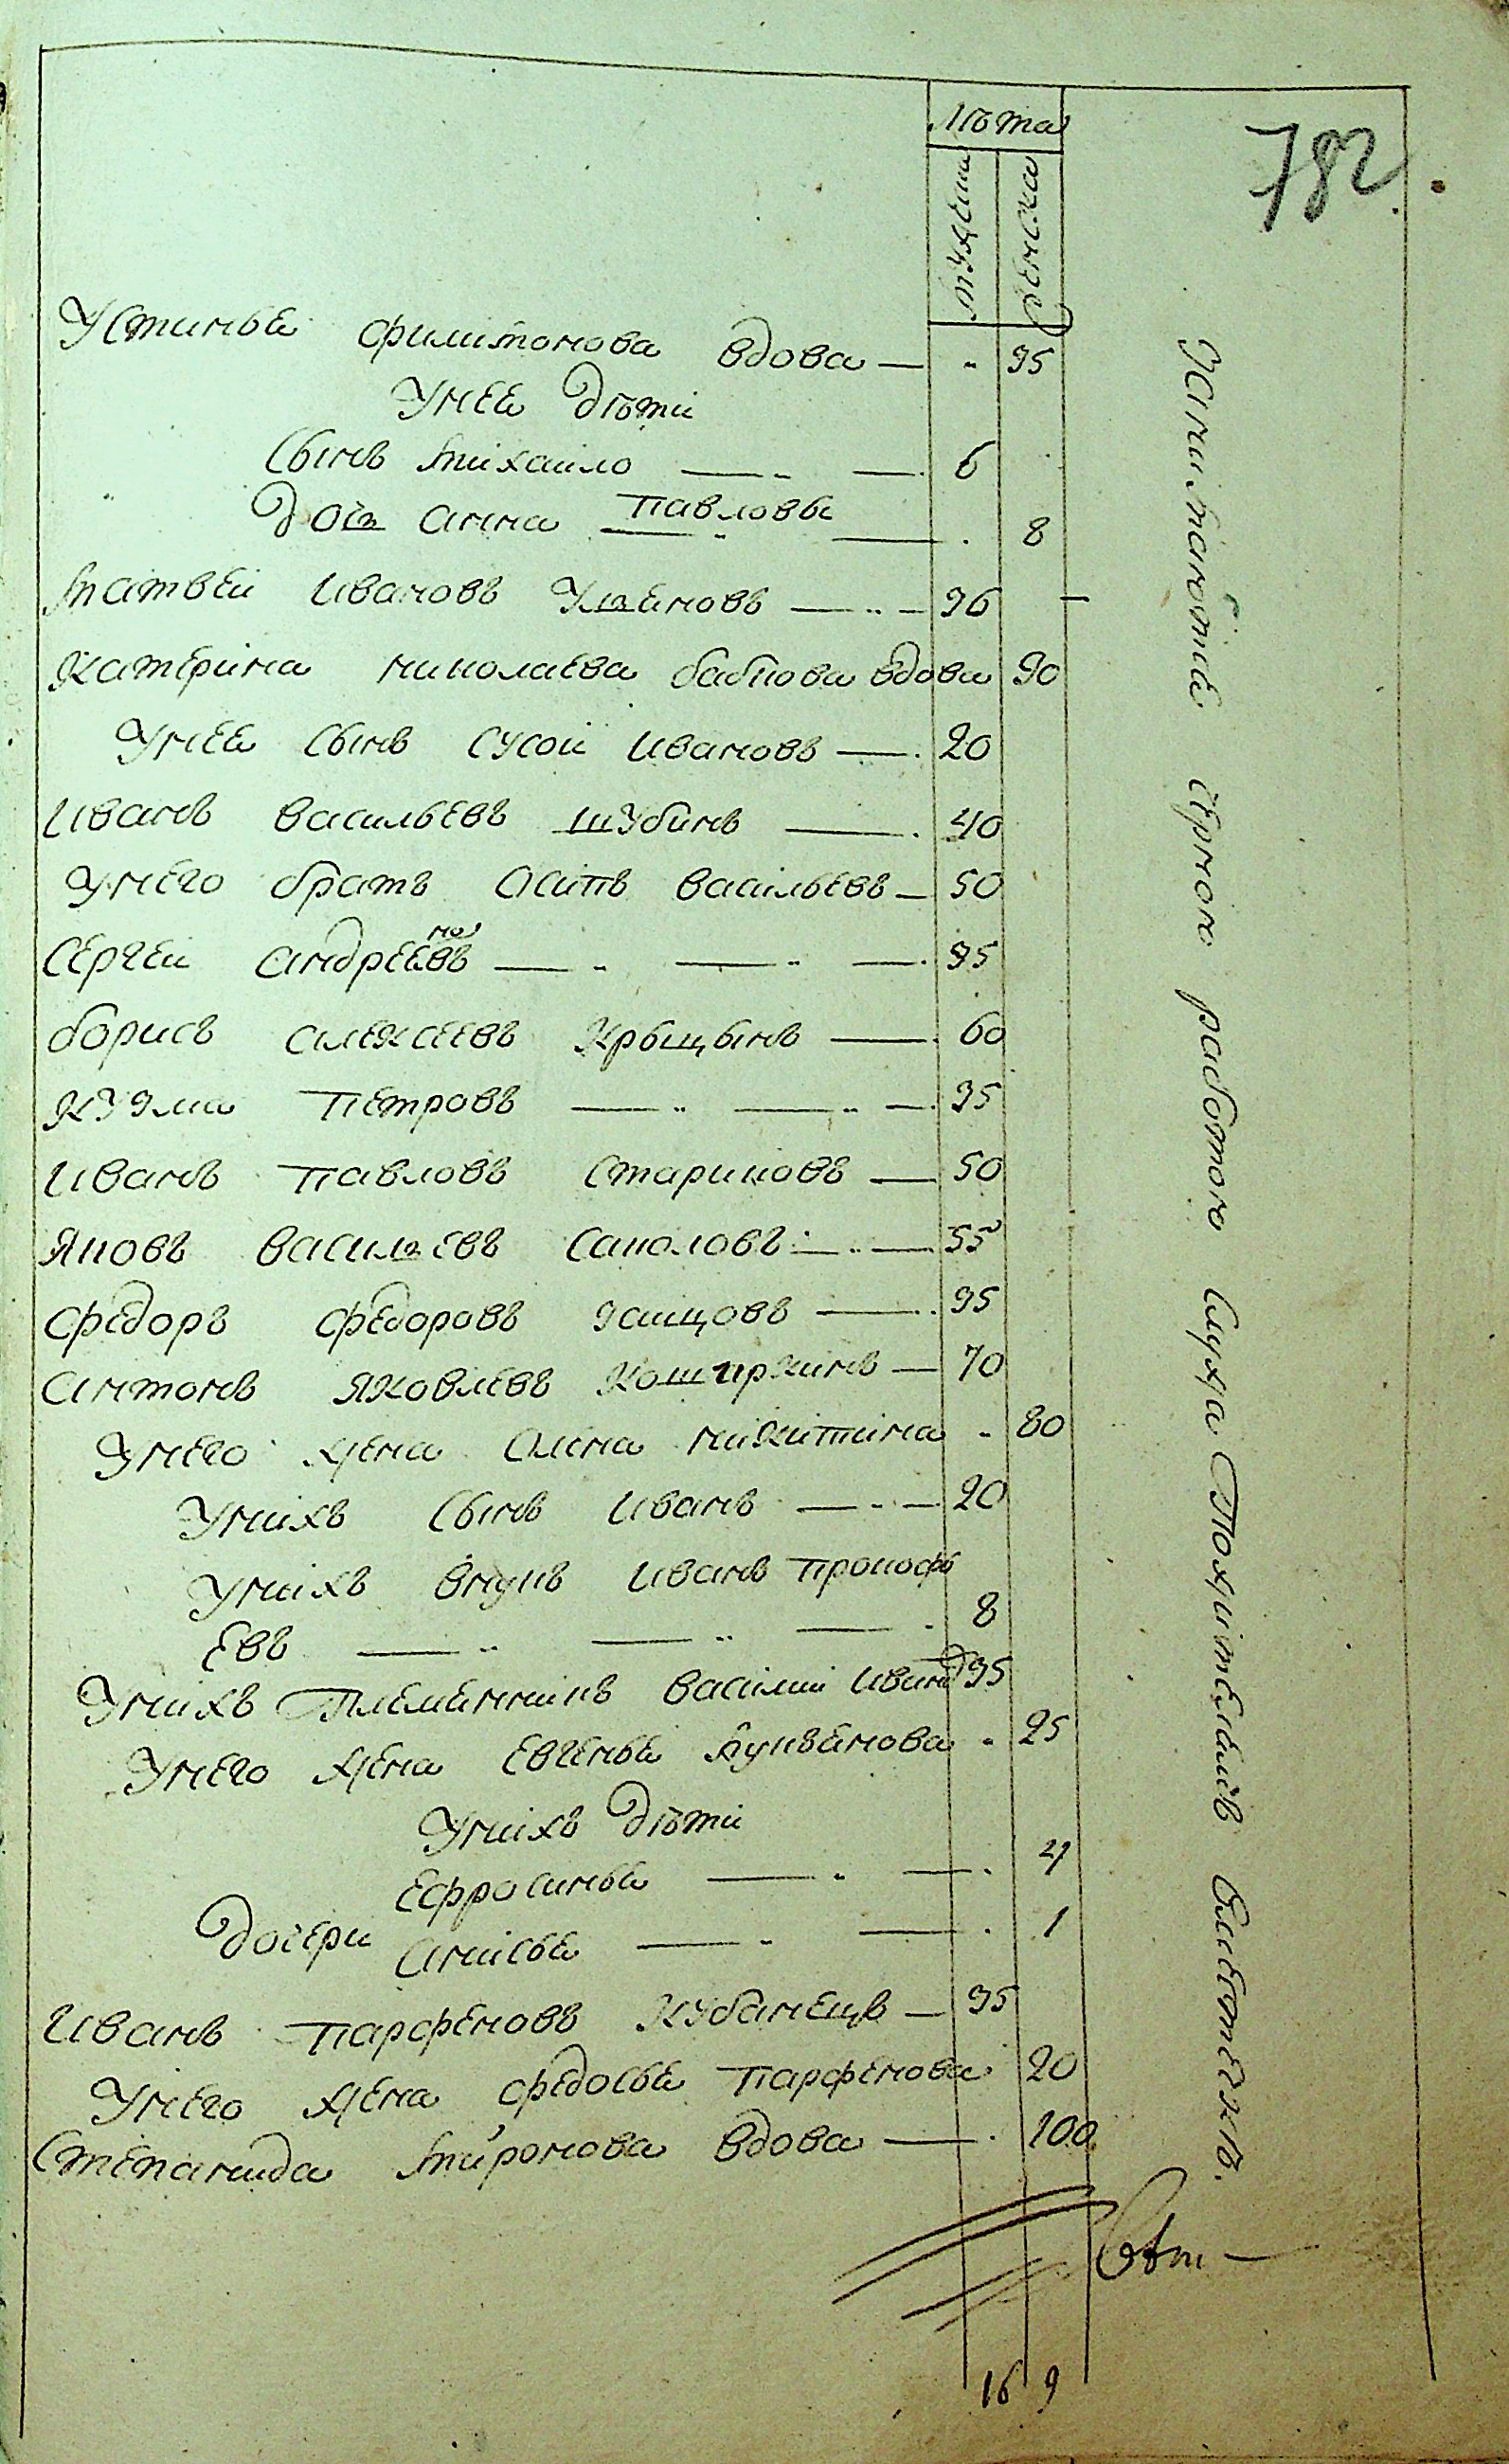 782
лѣта
мужеска
женска
Устинья Филитонова вдова — " 35
У нее дѣти
Сынъ Михайло — 6
Дочь Анна Павловы — 8
Матвей Ивановъ Ушеновъ — 36
Катерина Николаева вдова 90
У нее сынъ Сусой Ивановъ — 20
Иванъ Васильевъ Шубинъ — 40
У него братъ Осипъ Васильевъ — 50
Сергей Андреевъ — 35
Борисъ Алексеевъ Крыщынъ — 60
Кузма Петровъ — 35
Иванъ Павловъ Стариковъ — 50
Яковъ Васильевъ Саколовъ — 55
Федоръ Федоровъ Заицовъ — 35
Антонъ Яковлевъ Кошаркинъ — 70
У него жена Анна Никитина " 80
У нихъ сынъ Иванъ — 20
У нихъ внукъ Иванъ Прокофь
евъ — 8
У нихъ племянникъ Василий Иванов 35
У него жена Евгенья " 25
У нихъ дѣти
Ефросинья — 4
Дочери
Анисья — 1
Иванъ Парфеновъ Кубанецъ — 35
У него жена Федосья Парфенова 20
Степанида Миронова вдова — 100
16 9
Занимаются черною работою служа пожителямъ